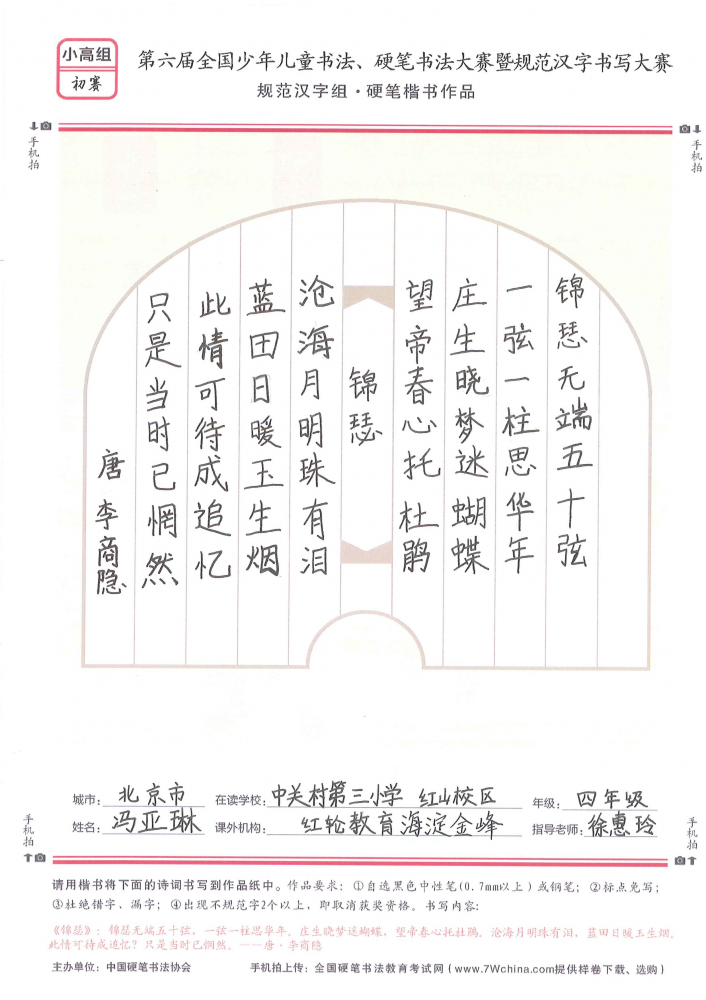 小高组
初赛
第六届全国少年儿童书法、硬笔书法大赛暨规范汉字书写大赛
规范汉字组·硬笔楷书作品
手机拍
手机拍
锦瑟无端五十弦
一弦一柱思华年
庄生晓梦迷蝴蝶
望帝春心托杜鹃
锦瑟
沧海月明珠有泪
蓝田日暖玉生烟
此情可待成追忆
只是当时已惘然
唐 李商隐
城市：北京市 在读学校：中关村第三小学 红山校区 年级：四年级
姓名：冯亚琳 课外机构：红轮教育海淀金峰 指导老师：徐惠玲
手机拍
手机拍
请用楷书将下面的诗词书写到作品纸中。作品要求：①自选黑色中性笔(0.7mm以上)或钢笔；②标点免写；
③杜绝错字、漏字；④出现不规范字2个以上，即取消获奖资格。书写内容：
《锦瑟》：锦瑟无端五十弦，一弦一柱思华年。庄生晓梦迷蝴蝶，望帝春心托杜鹃。沧海月明珠有泪，蓝田日暖玉生烟。
此情可待成追忆？只是当时已惘然。——唐·李商隐
主办单位：中国硬笔书法协会 手机拍上传：全国硬笔书法教育考试网(www.7Wchina.com提供样卷下载、选购)